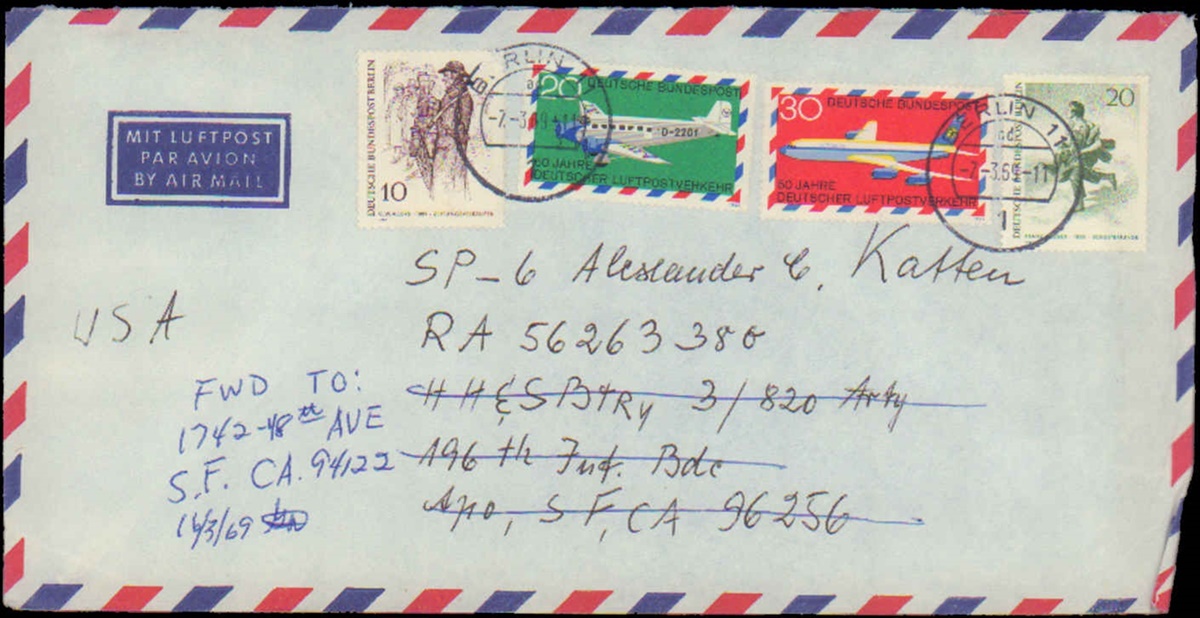 MIT LUFTPOST
PAR AVION
BY AIR MAIL
DEUTSCHE BUNDESPOST BERLIN
10
BERLIN
-7.-3.69-11
20
DEUTSCHE BUNDESPOST
D-2201
50 JAHRE
DEUTSCHER LUFTPOSTVERKEHR
30
DEUTSCHE BUNDESPOST
50 JAHRE
DEUTSCHER LUFTPOSTVERKEHR
BERLIN 11
-7.-3.69-11
1
20
DEUTSCHE BUNDESPOST BERLIN
SP-6 Alexander C. Katten
USA
RA 56263 380
HH&S Btry 3/820 Arty
196 th Inf. Bde
Apo, S F, CA 96256
FWD TO:
1742-48th AVE
S.F. CA. 94122